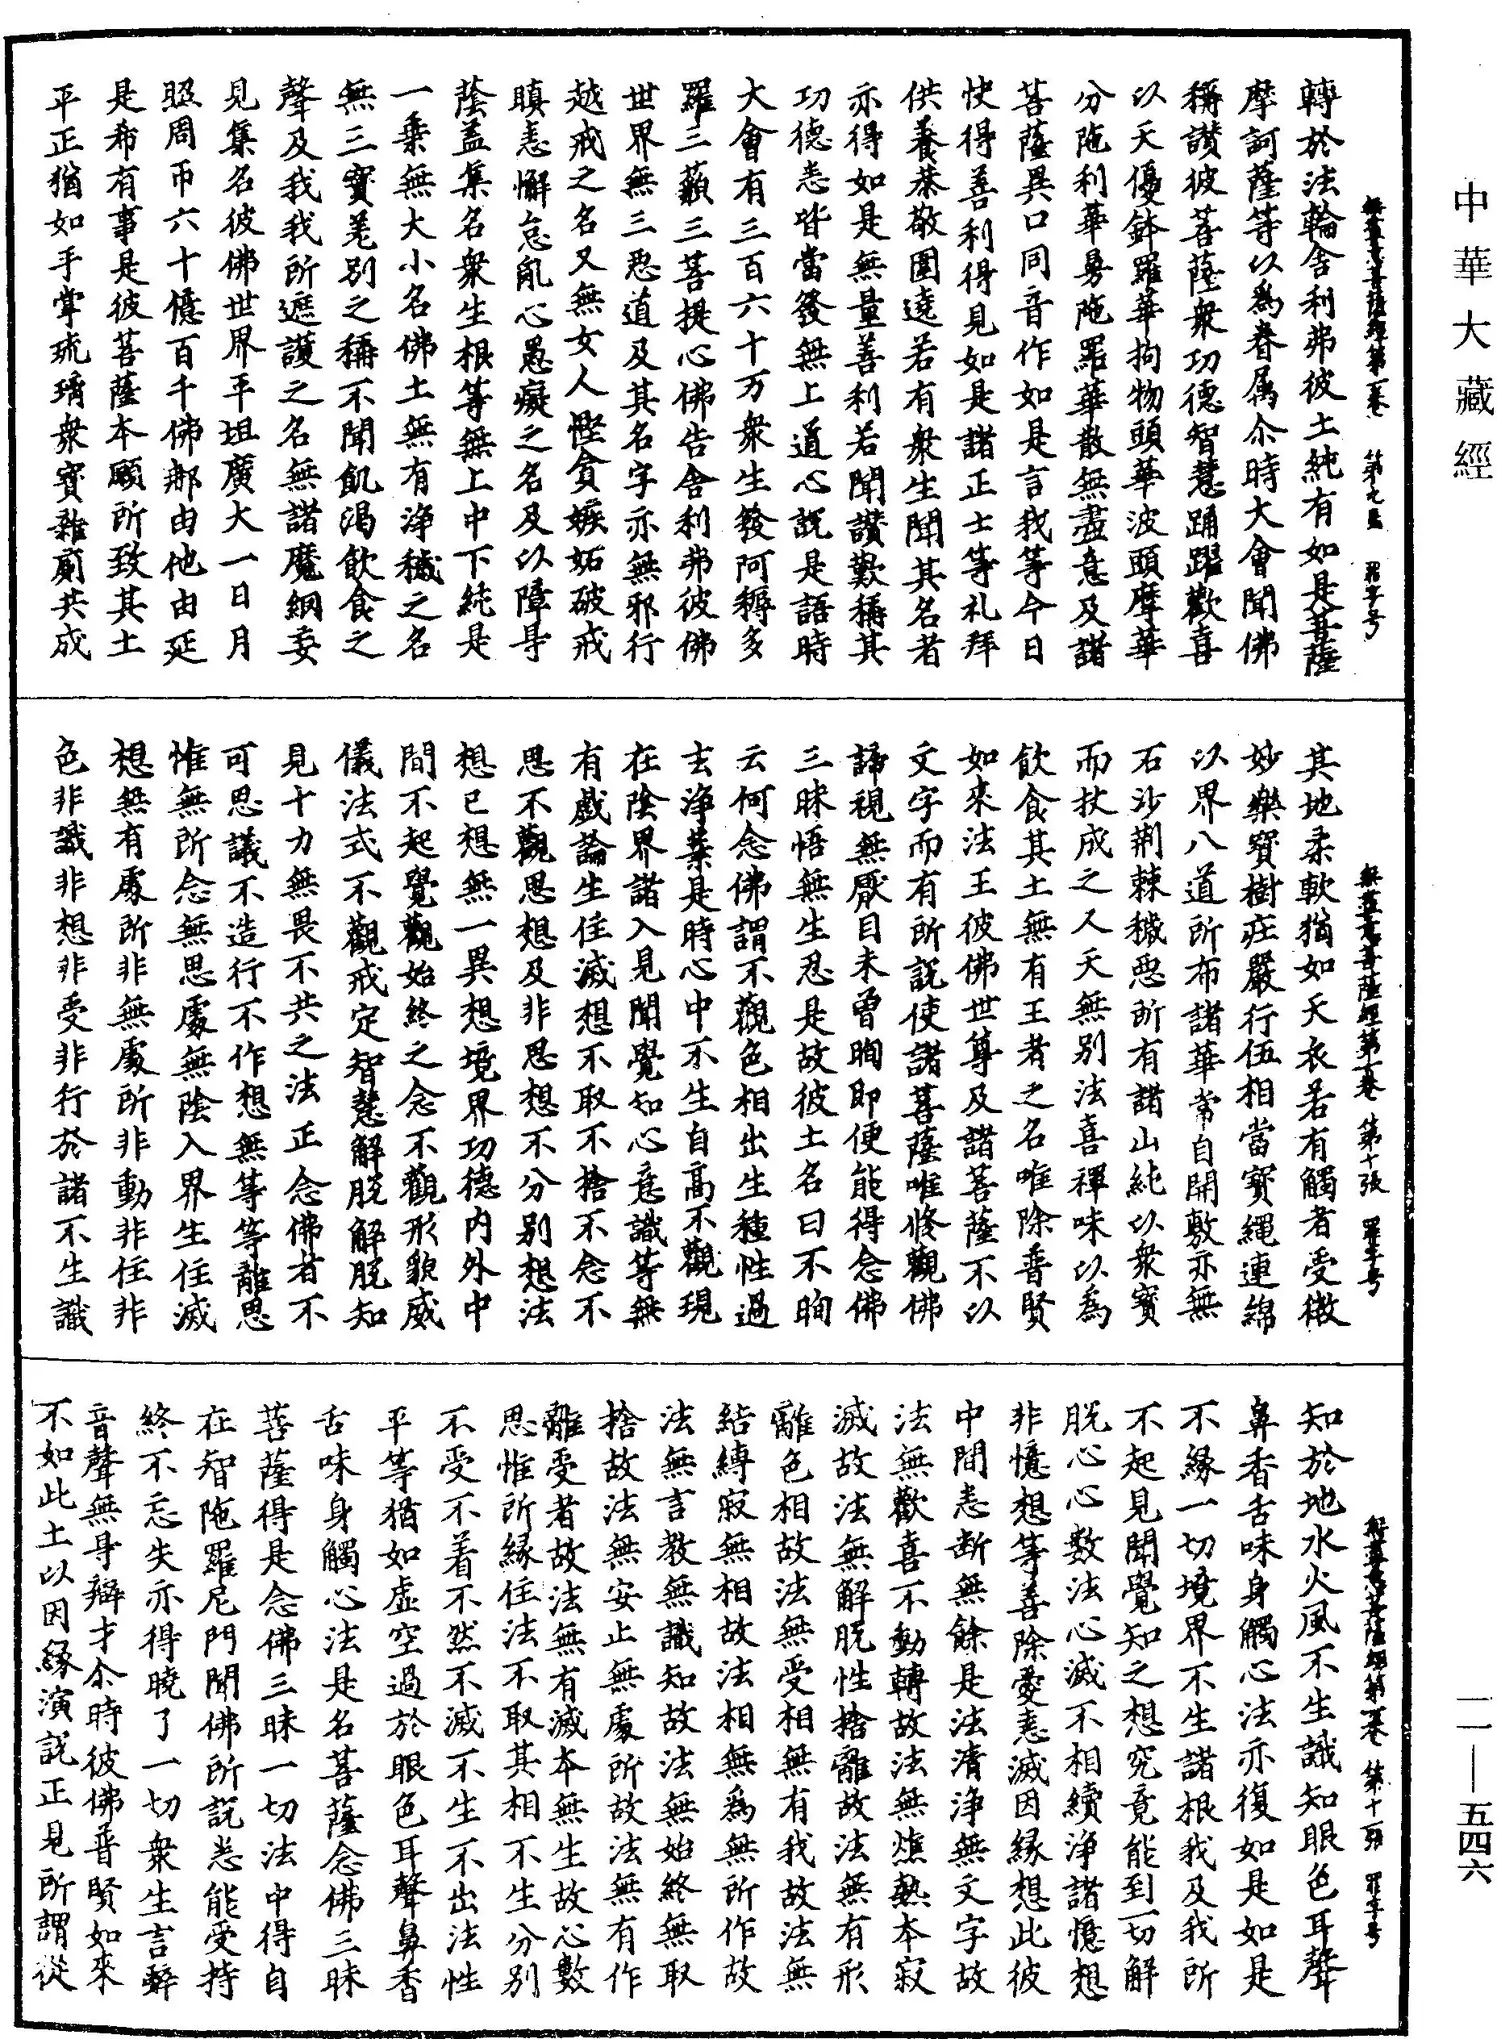 中華大藏經
無盡意菩薩經第一卷 第九張 羽字号
轉於法輪舍利弗彼土純有如是菩薩
摩訶薩等以爲眷属尒時大會聞佛
稱讃彼菩薩衆功德智慧踊躍歡喜
以天優鉢羅華拘物頭華波頭摩華
分陁利華曼陁羅華散無盡意及諸
菩薩異口同音作如是言我等今日
快得善利得見如是諸正士等礼拜
供養恭敬圍遶若有衆生聞其名者
亦得如是無量善利若聞讃歎稱其
功德悉皆當發無上道心說是語時
大會有三百六十万衆生發阿耨多
羅三藐三菩提心佛告舍利弗彼佛
世界無三惡道及其名字亦無邪行
越戒之名又無女人慳貪嫉妬破戒
瞋恚懈怠亂心愚癡之名及以障㝵
蔭盖集名衆生根等無上中下純是
一乗無大小名佛土無有浄穢之名
無三寶差別之稱不聞飢渴飲食之
聲及我我所遮護之名無諸魔網妄
見集名彼佛世界平坦廣大一日月
照周帀六十億百千佛那由他由延
是希有事是彼菩薩本願所致其土
平正猶如手掌琉璃衆寶雜廁共成
無盡意菩薩經第一卷 第十張 羽字号
其地柔軟猶如天衣若有觸者受微
妙樂寶樹莊嚴行伍相當寶繩連綿
以界八道所布諸華常自開敷亦無
石沙荆棘穢惡所有諸山純以衆寶
而扙成之人天無別法喜禪味以爲
飲食其土無有王者之名唯除普賢
如來法王彼佛世尊及諸菩薩不以
文字而有所說使諸菩薩唯修觀佛
諦視無厭目未曽眴即便能得念佛
三昧悟無生忍是故彼土名曰不眴
云何念佛謂不觀色相出生種性過
去浄業是時心中不生自高不觀現
在陰界諸入見聞覺知心意識等無
有戯論生住滅想不取不捨不念不
思不觀思想及非思想不分別想法
想已想無一異想境界功德内外中
間不起覺觀始終之念不觀形貌威
儀法式不觀戒定智慧解脱解脱知
見十力無畏不共之法正念佛者不
可思議不造行不作想無等等離思
惟無所念無思處無陰入界生住滅
想無有處所非無處所非動非住非
色非識非想非受非行於諸不生識
無盡意菩薩經第一卷 第十一張 羽字号
知於地水火風不生識知眼色耳聲
鼻香舌味身觸心法亦復如是如是
不緣一切境界不生諸根我及我所
不起見聞覺知之想究竟能到一切解
脱心心數法心滅不相續浄諸憶想
非憶想等善除愛恚滅因縁想此彼
中間悉断無餘是法清浄無文字故
法無歡喜不動轉故法無燋熱本寂
滅故法無解脱性捨離故法無有形
離色相故法無受相無有我故法無
結縛寂無相故法相無爲無所作故
法無言教無識知故法無始終無取
捨故法無安止無處所故法無有作
離受者故法無有滅本無生故心數
思惟所縁住法不取其相不生分別
不受不着不然不滅不生不出法性
平等猶如虚空過於眼色耳聲鼻香
舌味身觸心法是名菩薩念佛三昧
菩薩得是念佛三昧一切法中得自
在智陁羅尼門聞佛所說悉能受持
終不忘失亦得曉了一切衆生言辭
音聲無㝵辯才尒時彼佛普賢如來
不如此土以因縁演說正見所謂從
一一—五四六